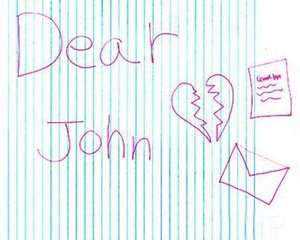 Dear
Good bye
John